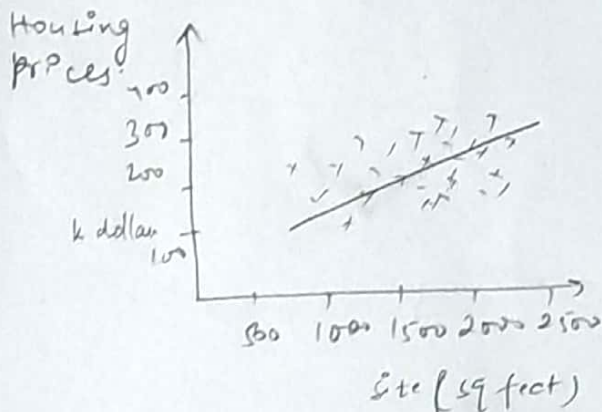 Housing
prices:
400
300
200
k dollar
100
500 1000 1500 2000 2500
Size (sq feet)